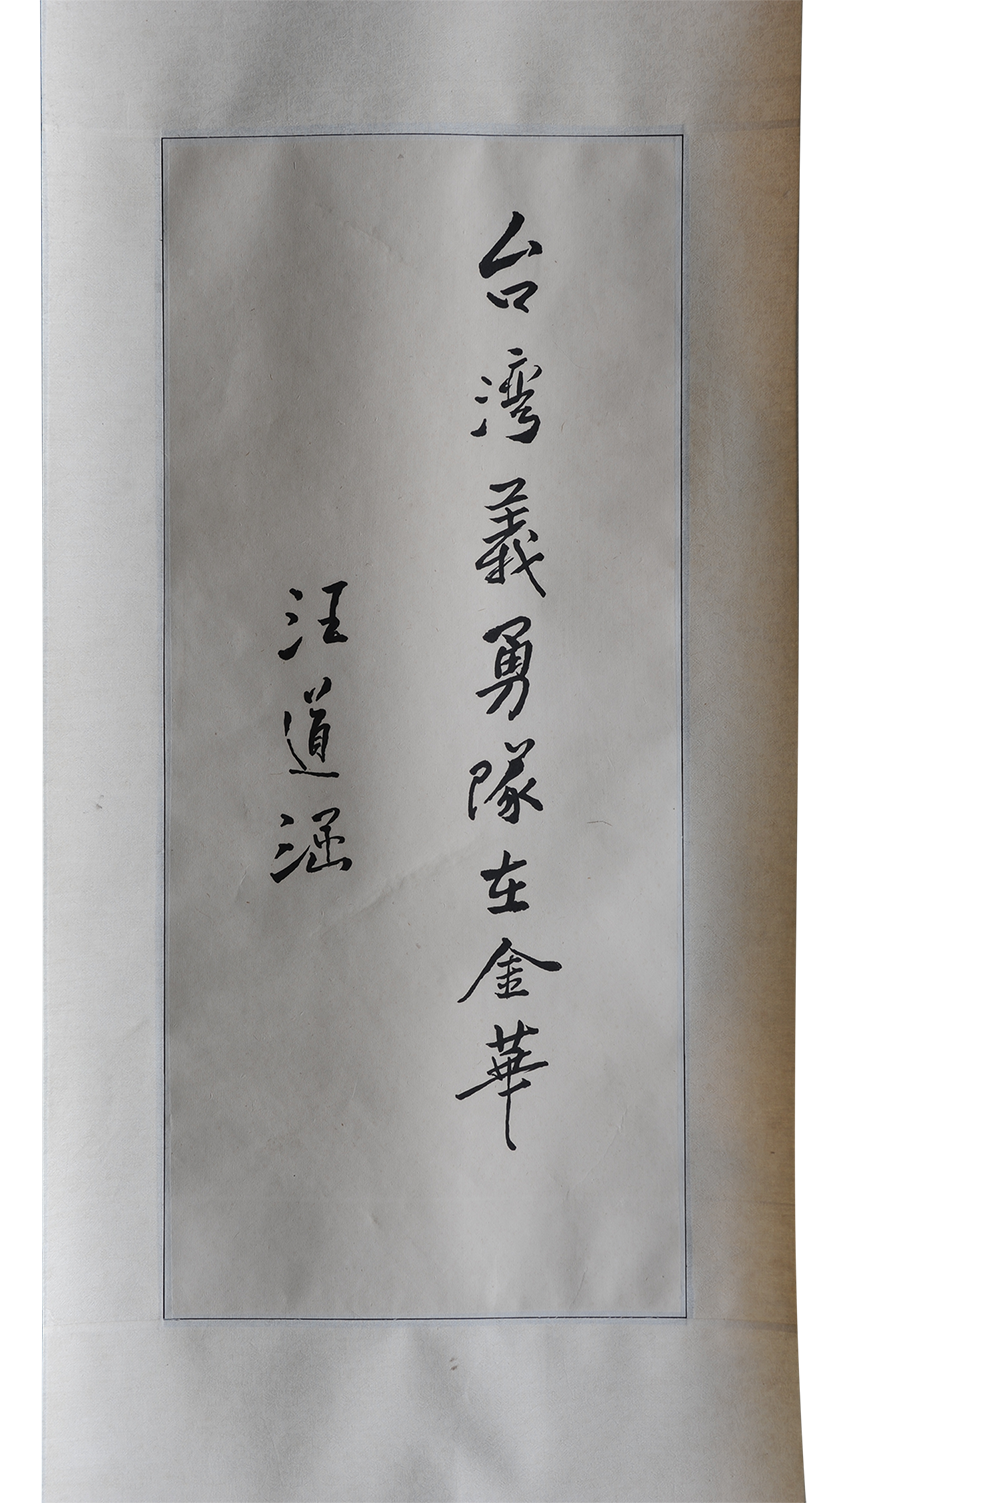 台湾義勇隊在金華
汪道涵